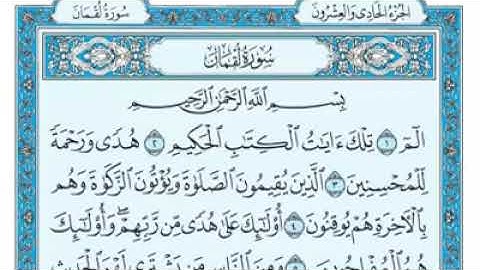 الجزء الحادي والعشرون
سورة لقمان
سورة لقمان
بِسْمِ اللَّهِ الرَّحْمَٰنِ الرَّحِيمِ
الٓمٓ ١ تِلْكَ ءَايَٰتُ الْكِتَٰبِ الْحَكِيمِ ٢ هُدًى وَرَحْمَةً
لِّلْمُحْسِنِينَ ٣ الَّذِينَ يُقِيمُونَ الصَّلَوٰةَ وَيُؤْتُونَ الزَّكَوٰةَ وَهُم
بِالْءَاخِرَةِ هُمْ يُوقِنُونَ ٤ أُو۟لَٰٓئِكَ عَلَىٰ هُدًى مِّن رَّبِّهِمْ ۖ وَأُو۟لَٰٓئِكَ
هُمُ الْمُفْلِحُونَ ٥ وَمِنَ النَّاسِ مَن يَشْتَرِي لَهْوَ الْحَدِيثِ